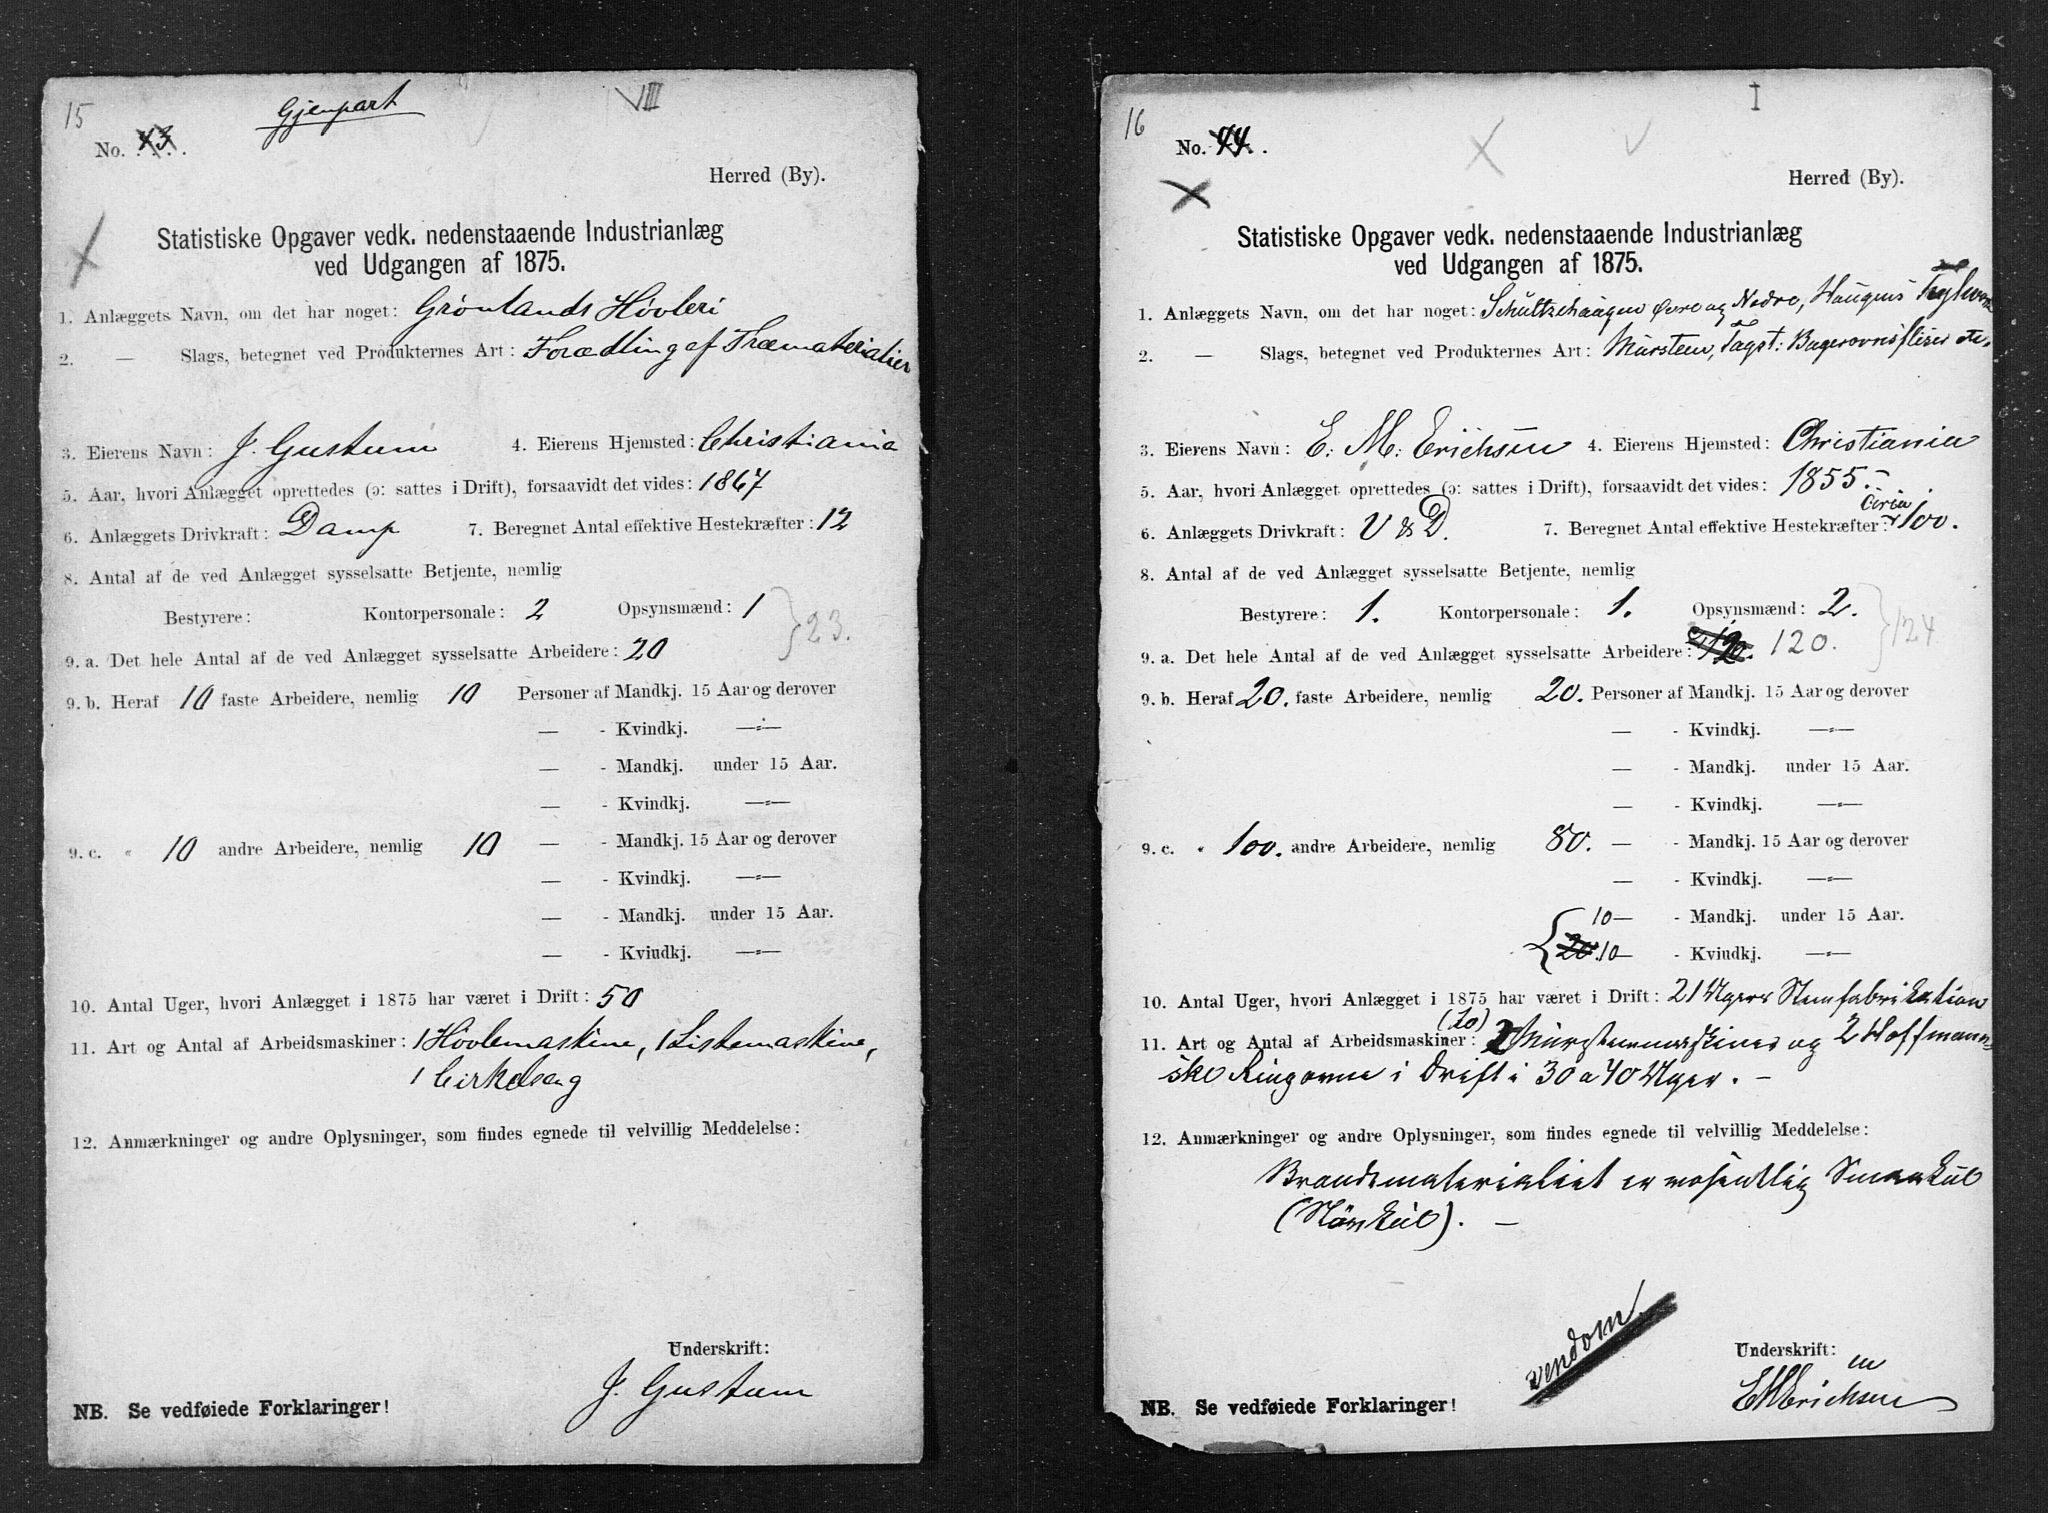 15
Gjenpart
VIII
No. 43.
Herred (By).
Statistiske Opgaver vedk. nedenstaaende Industrianlæg
ved Udgangen af 1875.
1. Anlæggets Navn, om det har noget: Grönlands Hövleri
2. — Slags, betegnet ved Produkternes Art: Forædling af Træmaterialier
3. Eierens Navn: J. Gustum 4. Eierens Hjemsted: Christiania
5. Aar, hvori Anlægget oprettedes (ɔ: sattes i Drift), forsaavidt det vides: 1867
6. Anlæggets Drivkraft: Damp 7. Beregnet Antal effektive Hestekræfter: 12
8. Antal af de ved Anlægget sysselsatte Betjente, nemlig
Bestyrere: Kontorpersonale: 2 Opsynsmænd: 1
23.
9. a. Det hele Antal af de ved Anlægget sysselsatte Arbeidere: 20
9. b. Heraf 10 faste Arbeidere, nemlig 10 Personer af Mandkj. 15 Aar og derover
— - Kvindkj. —„—
— - Mandkj. under 15 Aar.
— - Kvindkj. —„—
9. c. „ 10 andre Arbeidere, nemlig 10 — - Mandkj. 15 Aar og derover
— - Kvindkj. —„—
— - Mandkj. under 15 Aar.
— - Kviudkj. —„—
10. Antal Uger, hvori Anlægget i 1875 har været i Drift: 50
11. Art og Antal af Arbeidsmaskiner: 1 Hövlemaskine, 1 Listemaskine,
1 Cirkelsag
12. Anmærkninger og andre Oplysninger, som findes egnede til velvillig Meddelelse:
Underskrift:
J. Gustum
NB. Se vedføiede Forklaringer!
16
I
No. 44.
Herred (By).
Statistiske Opgaver vedk. nedenstaaende Industrianlæg
ved Udgangen af 1875.
1. Anlæggets Navn, om det har noget: Schultzehaugen Øvre og Nedre, Haugens Teglværk
2. — Slags, betegnet ved Produkternes Art: Mursten, Tagst: Bagerovnsfliser etc.
3. Eierens Navn: E. M. Erichsen 4. Eierens Hjemsted: Christiania
5. Aar, hvori Anlægget oprettedes (ɔ: sattes i Drift), forsaavidt det vides: 1855.–
6. Anlæggets Drivkraft: V & D. 7. Beregnet Antal effektive Hestekræfter: Circa 100.
8. Antal af de ved Anlægget sysselsatte Betjente, nemlig
Bestyrere: 1. Kontorpersonale: 1. Opsynsmænd: 2.
124
9. a. Det hele Antal af de ved Anlægget sysselsatte Arbeidere: 120.
9. b. Heraf 20. faste Arbeidere, nemlig 20. Personer af Mandkj. 15 Aar og derover
— - Kvindkj. —„—
— - Mandkj. under 15 Aar.
— - Kvindkj. —„—
9. c. „ 100. andre Arbeidere, nemlig 80. — - Mandkj. 15 Aar og derover
— - Kvindkj. —„—
10 — - Mandkj. under 15 Aar.
20. 10 — - Kviudkj. —„—
10. Antal Uger, hvori Anlægget i 1875 har været i Drift: 21 Uger Stenfabrikation
11. Art og Antal af Arbeidsmaskiner: (to) 2 Murstensmaskiner og 2 Hoffmann-
ske Ringovne i Drift i 30 a 40 Uger. –
12. Anmærkninger og andre Oplysninger, som findes egnede til velvillig Meddelelse:
Brandematerialiet er væsentlig Smaakul
(Stenkul). –
vendom
Underskrift:
EM Erichsen
NB. Se vedføiede Forklaringer!